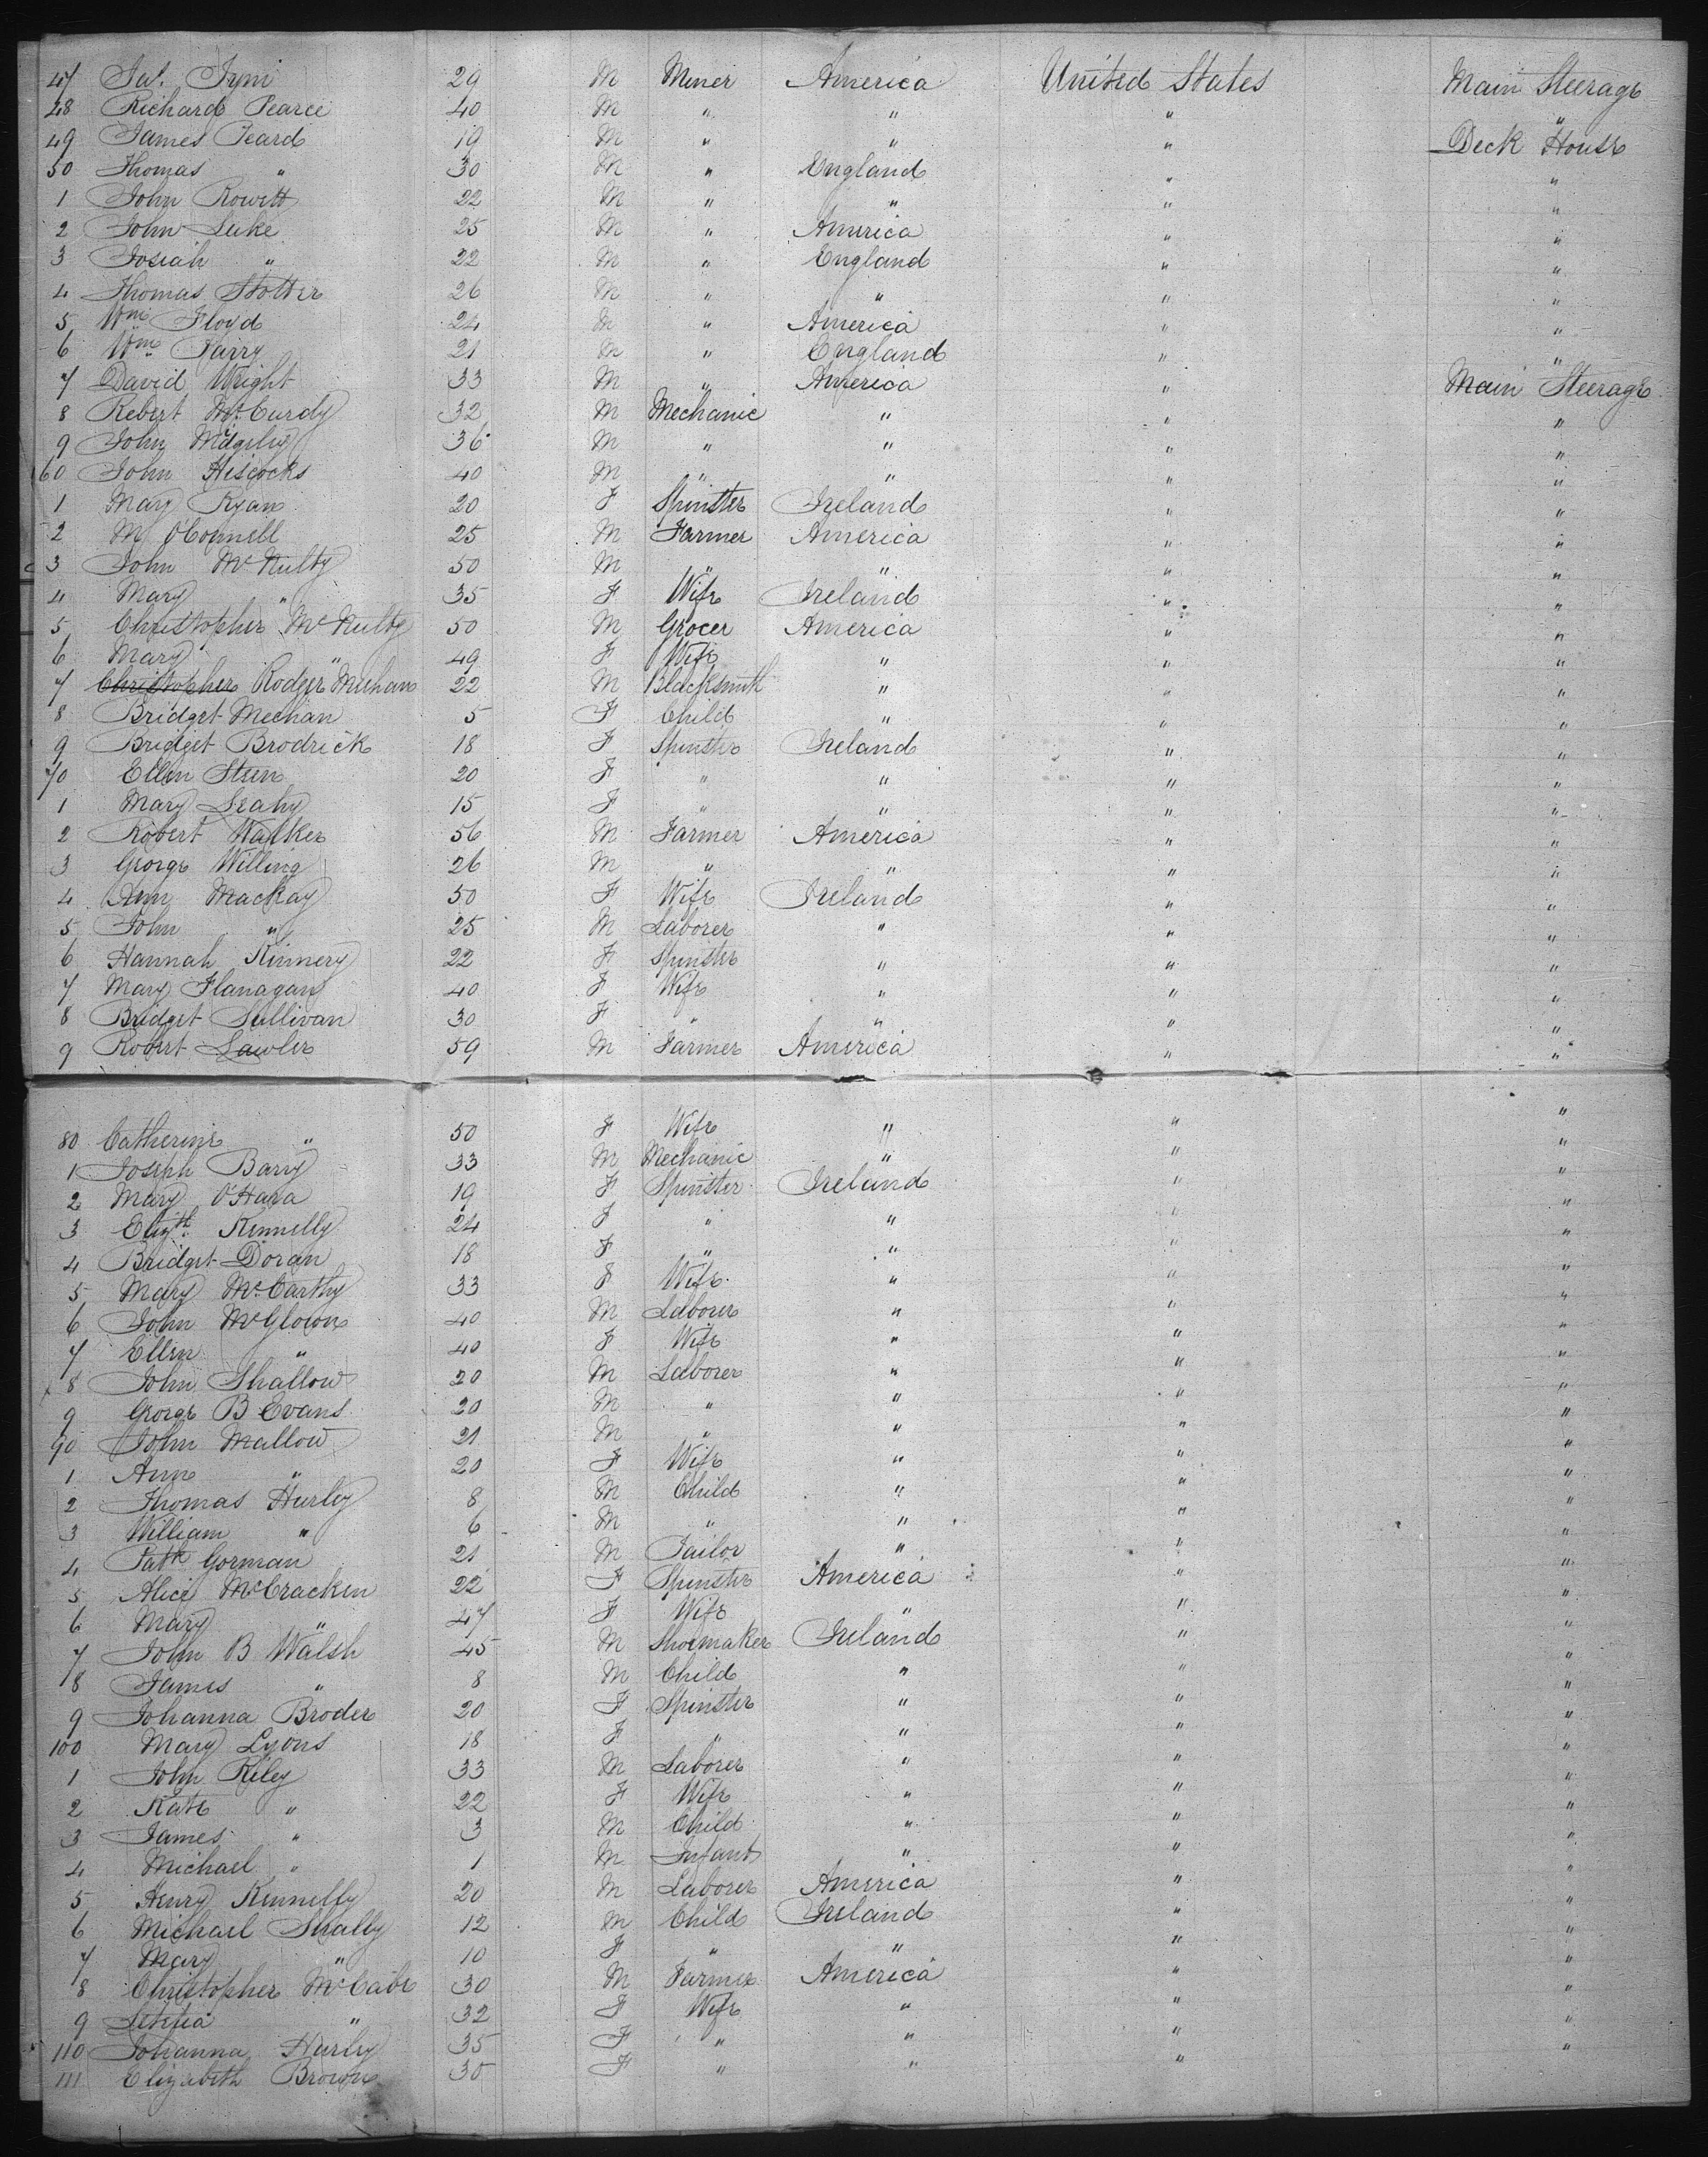 47 Jas. 29 M Miner America United States Main Steerage
48 Richard Pearce 40 M " " " "
49 James Peard 19 M " " " Deck House
50 Thomas " 30 M " England " "
1 John Rowett 22 M " " " "
2 John Luke 25 M " America " "
3 Josiah " 22 M " England " "
4 Thomas Stotter 26 M " " " "
5 Wm Floyd 24 M " America " "
6 Wm Parry 21 M " England " "
7 David Wright 33 M " America " Main Steerage
8 Robert McCurdy 32 M Mechanic " " "
9 John 36 M " " " "
60 John Hiscocks 40 M " " " "
1 Mary Ryan 20 F Spinster Ireland " "
2 M O'Connell 25 M Farmer America " "
3 John McNulty 50 M " " " "
4 Mary " 35 F Wife Ireland " "
5 Christopher McNulty 50 M Grocer America " "
6 Mary " 49 F Wife " " "
7 Christopher Rodger Meehan 22 M Blacksmith " " "
8 Bridget Meehan 5 F Child " " "
9 Bridget Brodrick 18 F Spinster Ireland " "
70 Ellen Steen 20 F " " " "
1 Mary Leahy 15 F " " " "
2 Robert Walker 56 M Farmer America " "
3 George Willing 26 M " " " "
4 Ann Mackay 50 F Wife Ireland " "
5 John " 25 M Laborer " " "
6 Hannah Kinnery 22 F Spinster " " "
7 Mary Flanagan 40 F Wife " " "
8 Bridget Sullivan 30 F " " " "
9 Robert Lawler 59 M Farmer America " "
80 Catherine " 50 F Wife " " "
1 Joseph Barry 33 M Mechanic " " "
2 Mary O'Hara 19 F Spinster Ireland " "
3 Elizth Kennelly 24 F " " " "
4 Bridget Doran 18 F " " " "
5 Mary McCarthy 33 F Wife " " "
6 John McGlown 40 M Laborer " " "
7 Ellen " 40 F Wife " " "
8 John Shallow 20 M Laborer " " "
9 George B Evans 20 M " " " "
90 John Mallow 21 M " " " "
1 Ann " 20 F Wife " " "
2 Thomas Hurley 8 M Child " " "
3 William " 6 M " " " "
4 Patk Gorman 21 M Tailor " " "
5 Alice McCracken 22 F Spinster America " "
6 Mary " 47 F Wife " " "
7 John B Walsh 45 M Shoemaker Ireland " "
8 James " 8 M Child " " "
9 Johanna Broder 20 F Spinster " " "
100 Mary Lyons 18 F " " " "
1 John Riley 33 M Laborer " " "
2 Kate " 22 F Wife " " "
3 James " 3 M Child " " "
4 Michael " 1 M Infant " " "
5 Henry Kennelly 20 M Laborer America " "
6 Michael Shally 12 M Child Ireland " "
7 Mary " 10 F " " " "
8 Christopher McCabe 30 M Farmer America " "
9 Letitia " 32 F Wife " " "
110 Johanna Hurley 35 F " " " "
111 Elizabeth Brown 30 F " " "